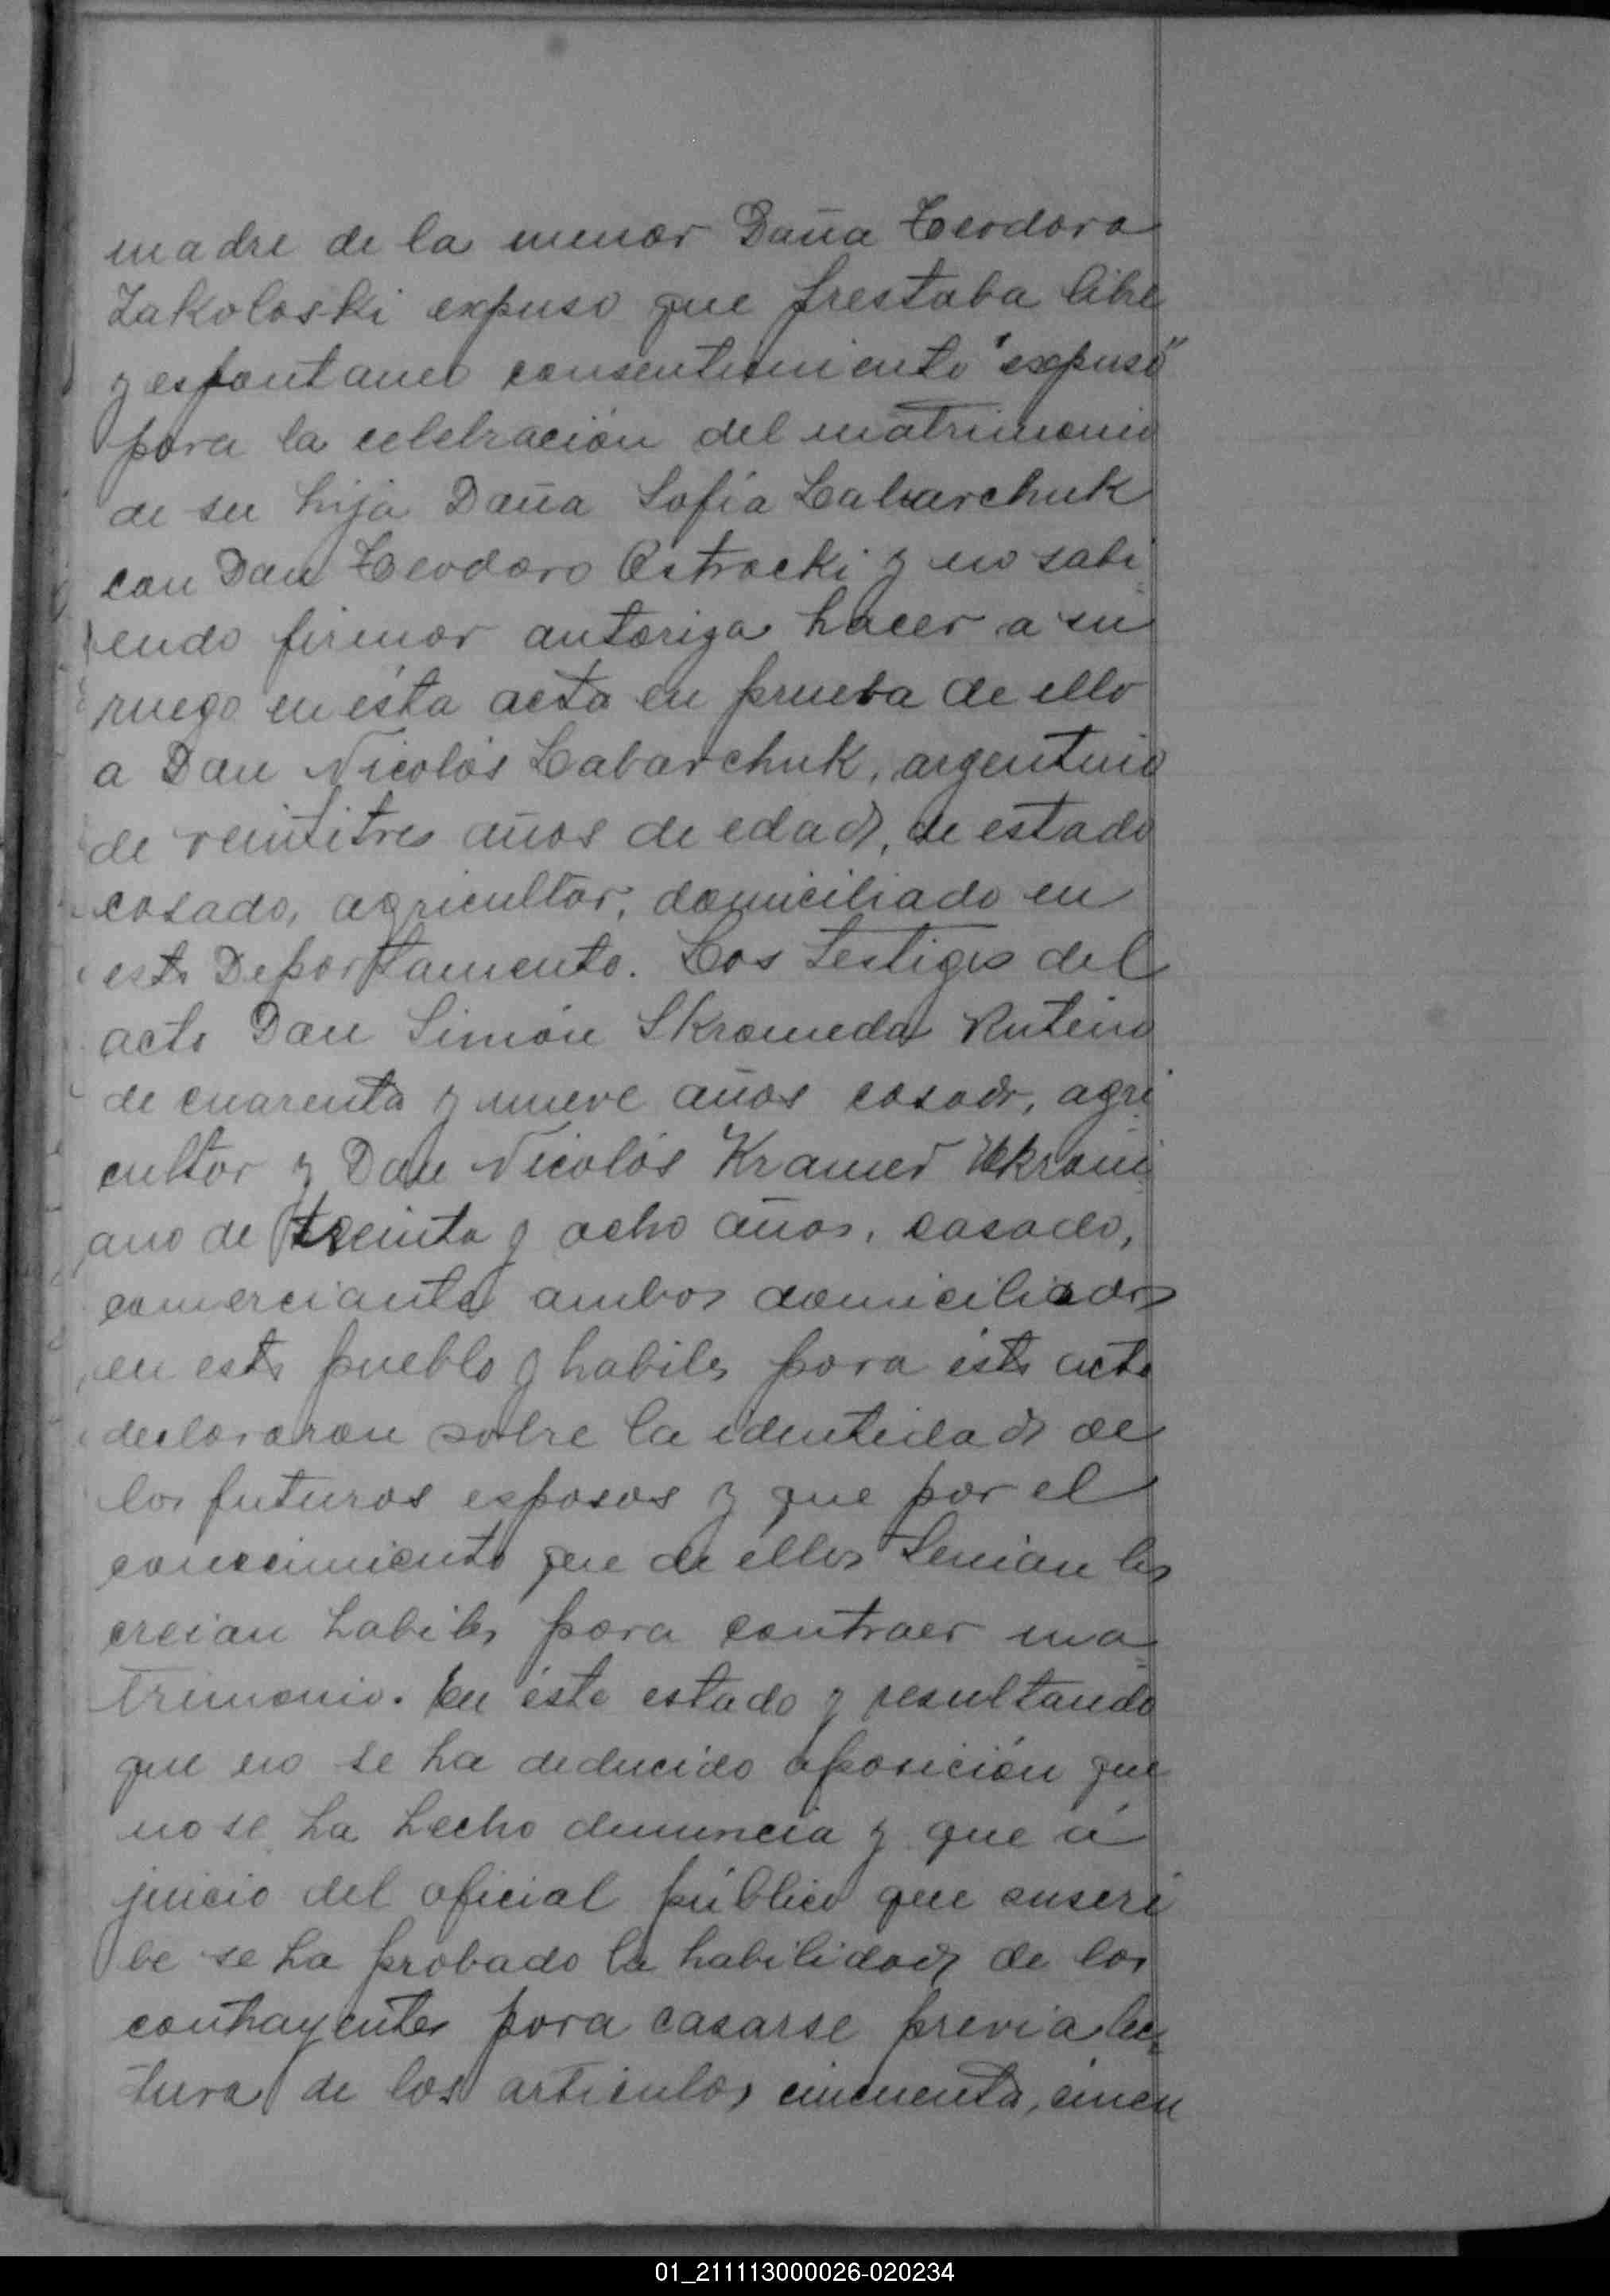 madre de la menor Doña Teodora
Zakoloski expuso que prestaba libre
y espontaneo consentimiento "expuso"
para la celebración del matrimonio
de su hija Doña Sofía Labarchuk
con Don Teodoro Ostrocki y no sabi
endo firmar autoriza hacer a su
ruego en ésta acta en prueba de ello
a Don Nicolás Labarchuk, argentino
de veintitres años de edad, de estado
casado, agricultor, domiciliado en
este Departamento. Los testigos del
acto Don Simón Skromeda Ruteno
de cuarenta y nueve años casado, agri
cultor y Don Nicolás Kramer Ukrani
ano de treinta y ocho años, casado,
comerciante ambos domiciliados
en este pueblo y habiles para éste acto
declararon sobre la identidad de
los futuros esposos y que por el
conocimiento que de ellos tenian los
creian habiles para contraer ma
trimonio. En éste estado y resultando
que no se ha deducido oposición que
no se ha hecho denuncia y que á
juicio del oficial público que suscri
be se ha probado la habilidad de los
contrayentes para casarse previa lec
tura de los articulos cincuenta, cincu
01_211113000026-020234